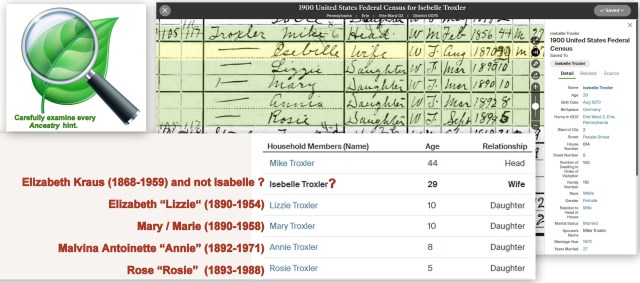 1900 United States Federal Census for Isebelle Troxler
Pennsylvania › Erie › Erie Ward 02 › District 0075
Saved
Carefully examine every
Ancestry hint.
Troxler Mike C Head W M Feb 1856 44 M 27
— Isebelle Wife W F Aug 1870 29 M
— Lizzie Daughter W F Mar 1890 10
— Mary Daughter W F Mar 1890 10
— Annie Daughter W F Mar 1892 8
— Rosie Daughter W F Sept 1894 5
Isebelle Troxler
1900 United States Federal
Census
Saved To
Isebelle Troxler
Detail Related Source
Name Isebelle Troxler
Age 29
Birth Date Aug 1870
Birthplace Germany
Home in 1900 Erie Ward 2, Erie,
Pennsylvania
Ward of City 2
Street Parade Street
House
Number
Number of
Dwelling in
Order of
Visitation
Family
Number
Race White
Gender Female
Relation to Wife
Head of
House
Marital Status Married
Spouse's Mike Troxler
Name
Marriage Year
Years Married 27
Household Members (Name) Age Relationship
Mike Troxler 44 Head
Elizabeth Kraus (1868-1959) and not Isabelle ? Isebelle Troxler? 29 Wife
Elizabeth “Lizzie“ (1890-1954) Lizzie Troxler 10 Daughter
Mary / Marie (1890-1958) Mary Troxler 10 Daughter
Malvina Antoinette “Annie” (1892-1971) Annie Troxler 8 Daughter
Rose “Rosie” (1893-1988) Rosie Troxler 5 Daughter